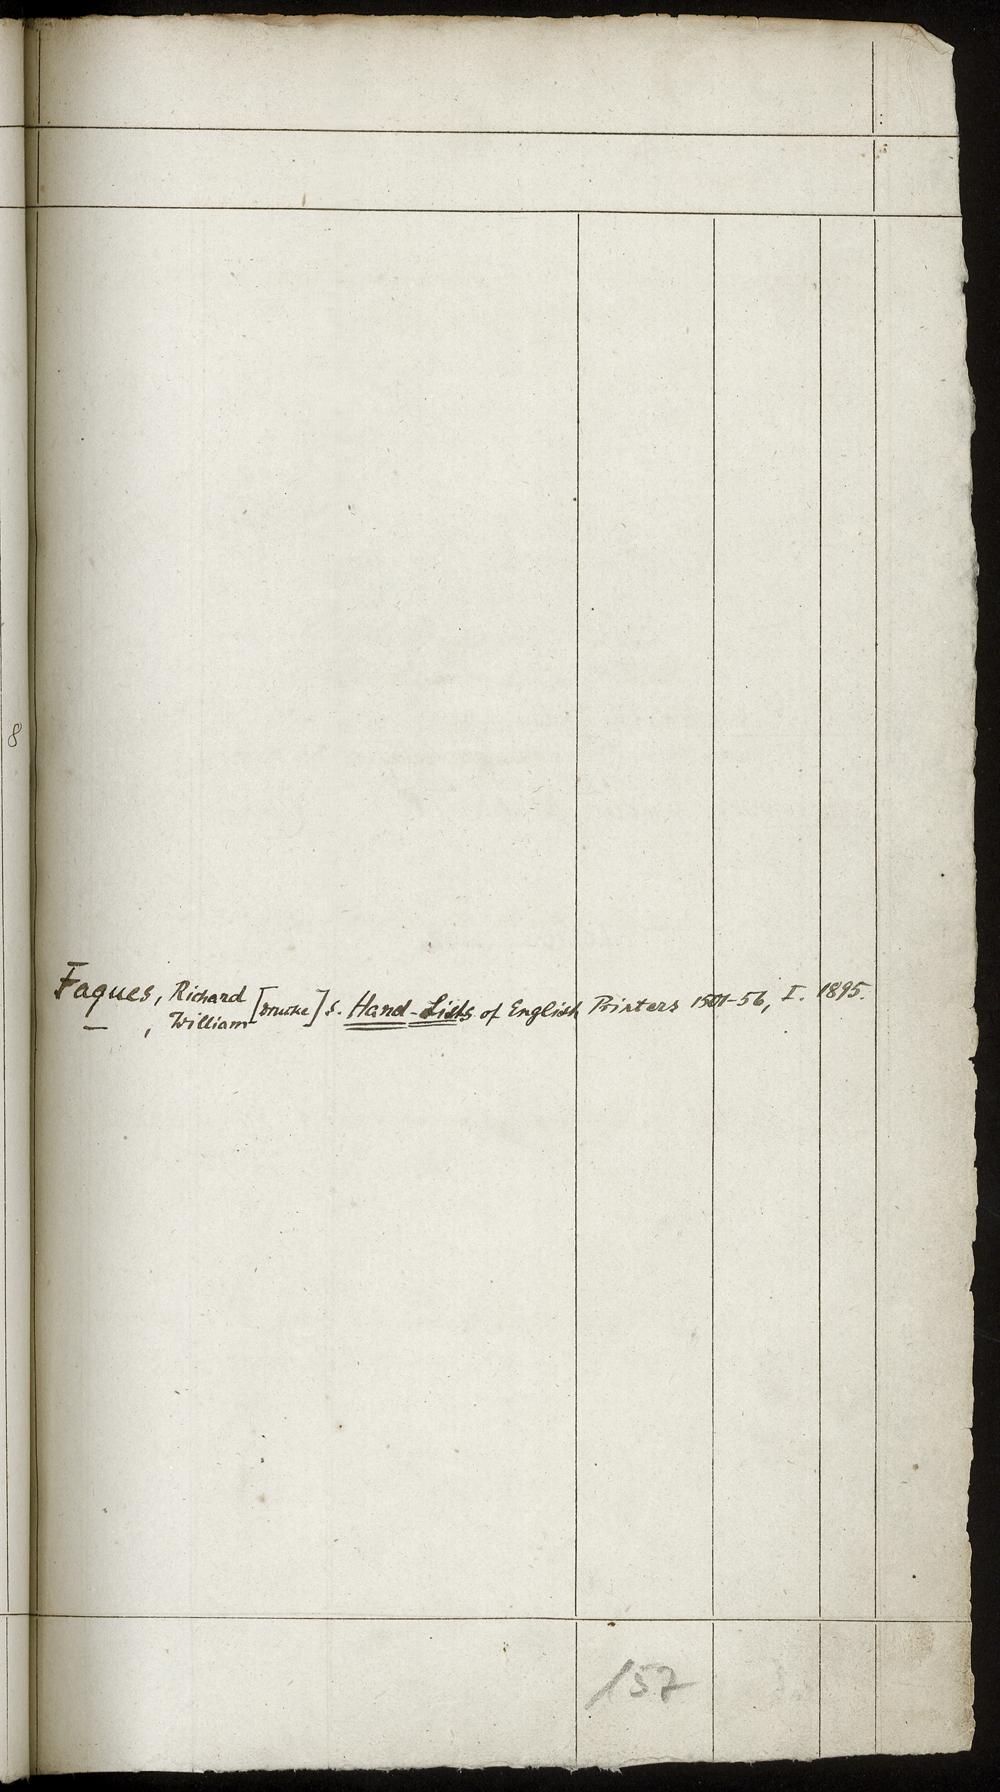 8
Faques, Richard
— , William [Drucke] s. Hand-Lists of English Printers 1501-56, I. 1895.
157